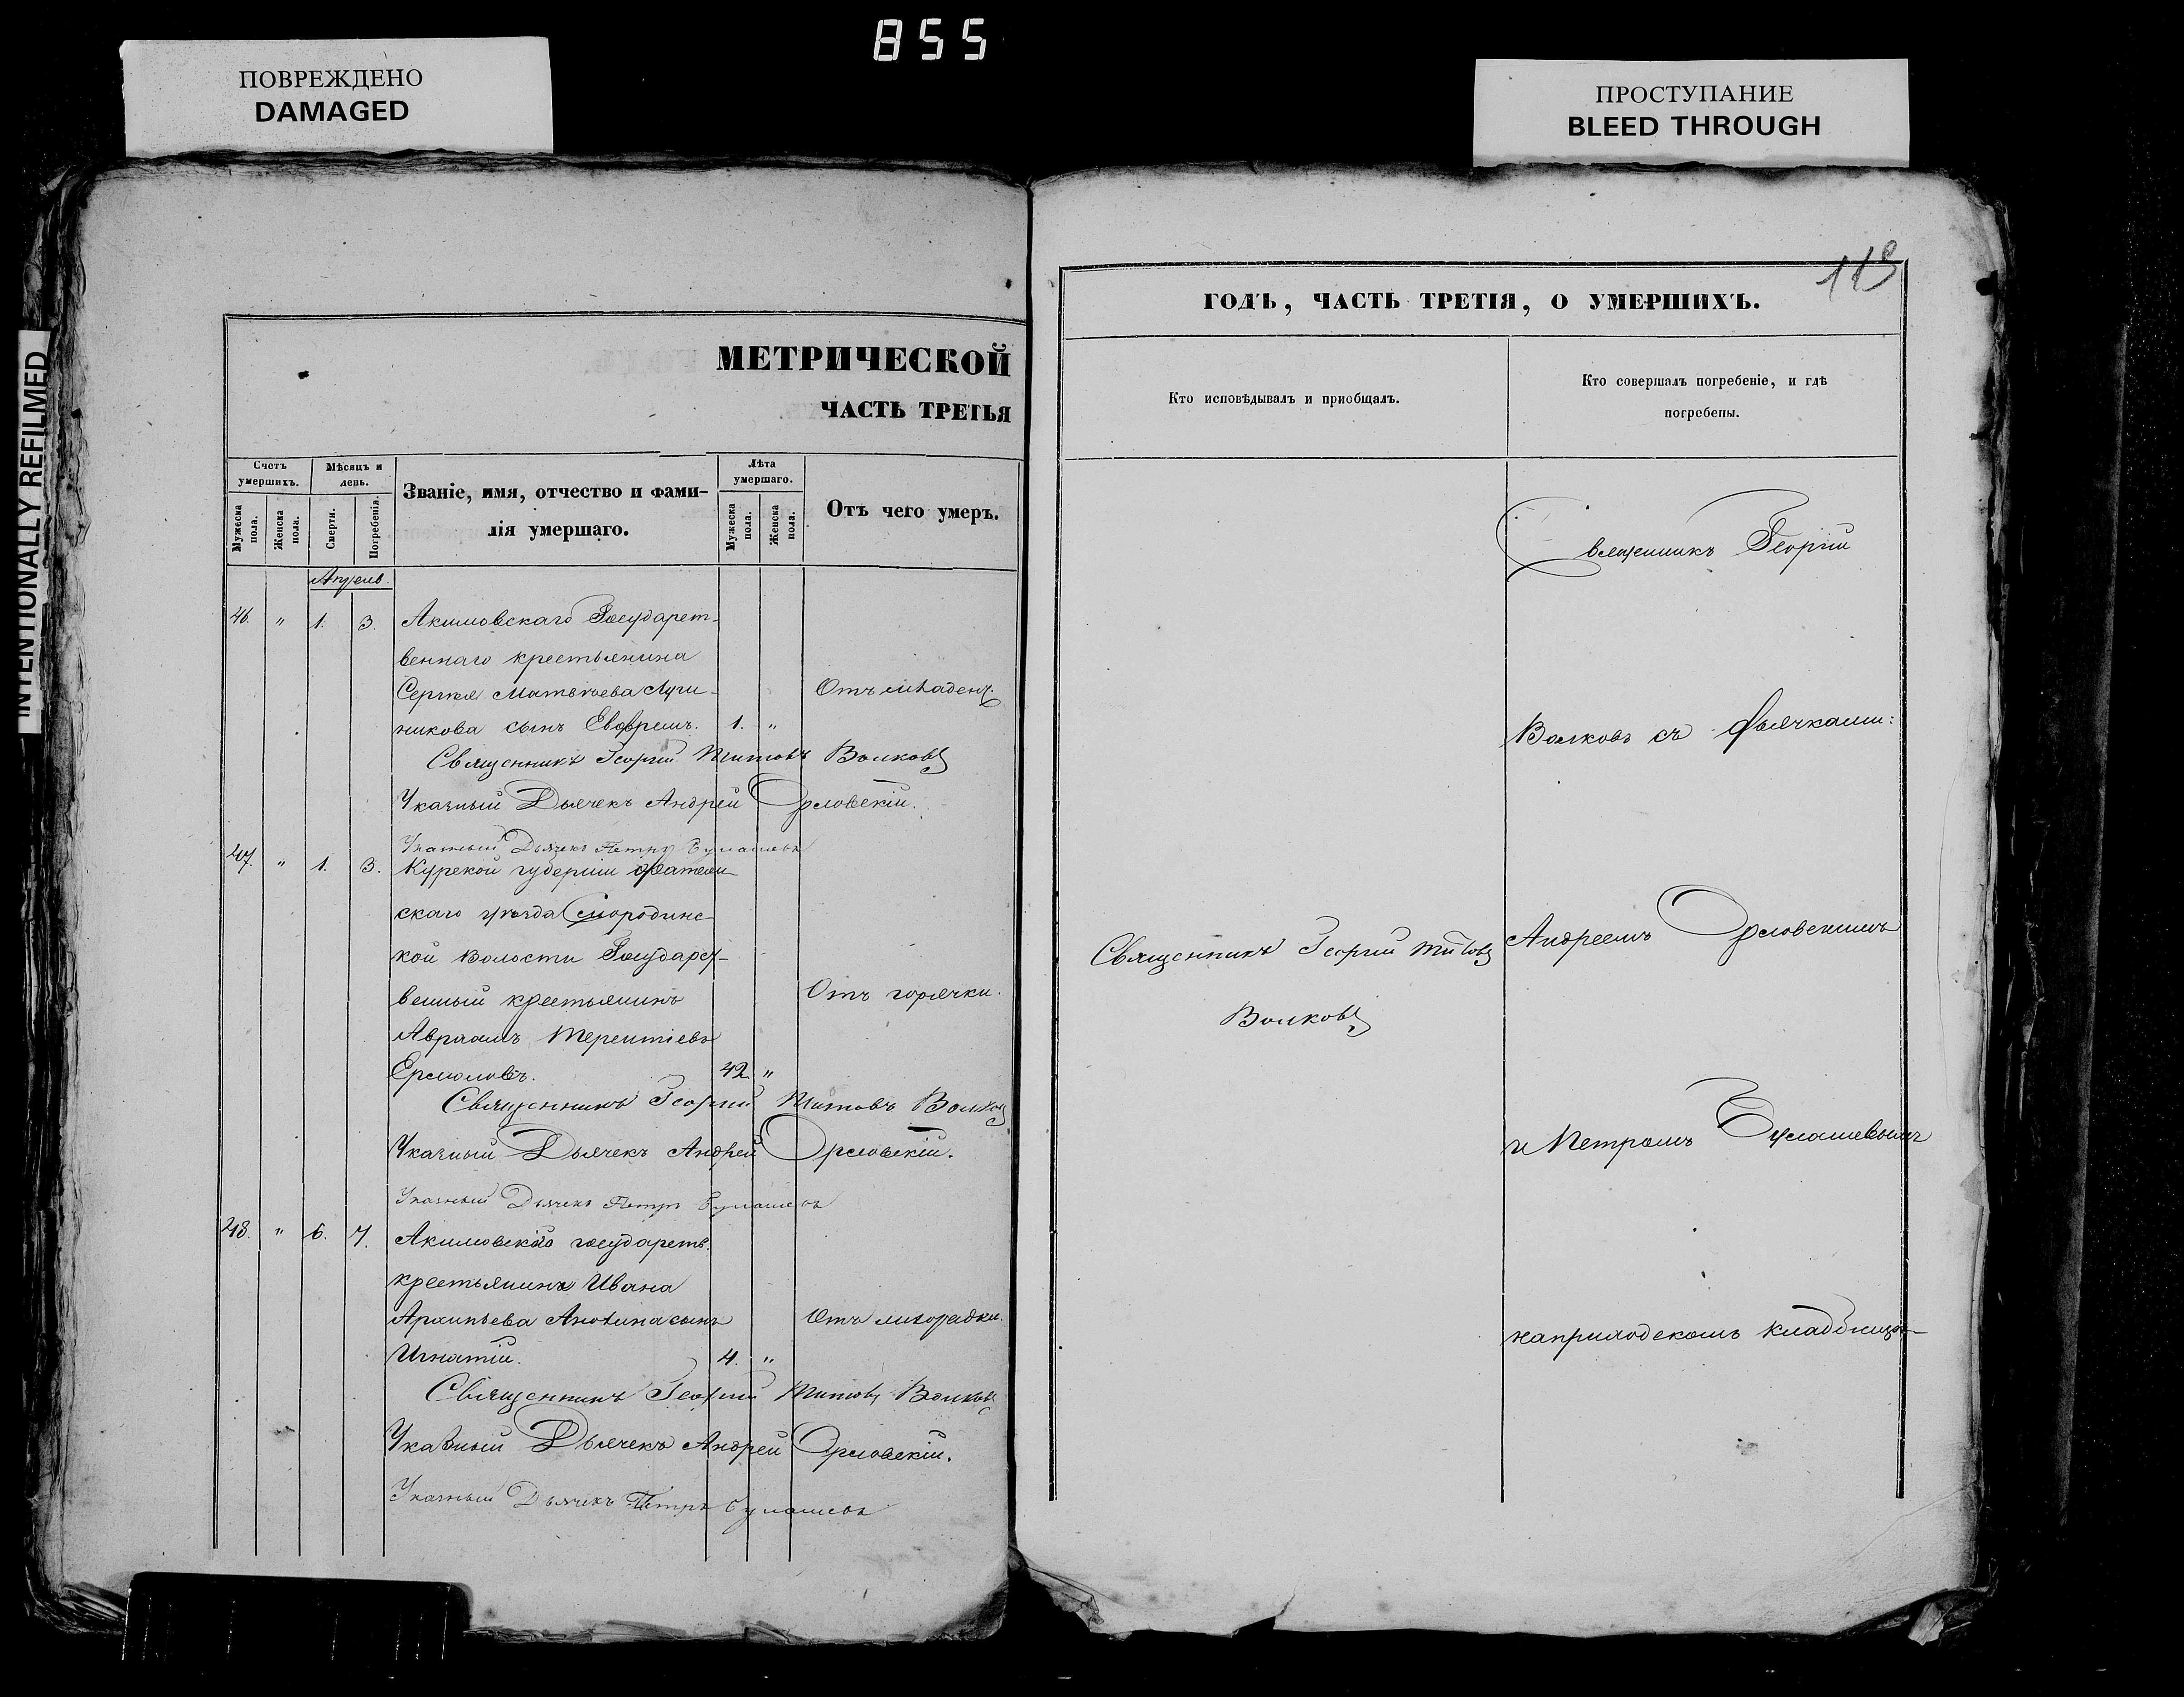 855
ПОВРЕЖДЕНО
DAMAGED
ПРОСТУПАНИЕ
BLEED THROUGH
INTENTIONALLY REFILMED
МЕТРИЧЕСКОЙ
ЧАСТЬ ТРЕТЬЯ
Счетъ умершихъ.
Мужеска пола.
Женска пола.
Мѣсяцъ и день.
Смерти.
Погребенія.
Званіе, имя, отчество и фами-
лія умершаго.
Лѣта умершаго.
Мужеска пола.
Женска пола.
Отъ чего умеръ.
Апрель.
46. " 1. 3. Акимовскаго Государст-
веннаго крестьянина
Сергѣя Матвѣева Отъ младенч.
никова сынъ Евфремъ. 1. "
Священникъ Георгій Титовъ Волковъ
Указный Дьячекъ Андрей Орловскій.
Указный Дьячекъ Петръ Булашевъ
47. " 1. 3. Курской губерніи Фатеж-
скаго уѣзда Смородинс-
кой Волости Государст-
венный крестьянинъ Отъ горячки.
Авраамъ Терентіевъ
Ермоловъ. 42 "
Священникъ Георгій Титовъ Волковъ
Указный Дьячекъ Андрей Орловскій.
Указный Дьячекъ Петръ Булашевъ
48. " 6. 7. Акимовскаго государств.
крестьянина Ивана
Архипьева Анохина сынъ Отъ лихорадки.
Игнатій. 4. "
Священникъ Георгій Титовъ Волковъ
Указный Дьячекъ Андрей Орловскій.
Указный Дьячекъ Петръ Булашевъ
ГОДЪ, ЧАСТЬ ТРЕТІЯ, О УМЕРШИХЪ.
Кто исповѣдывалъ и пріобщалъ.
Кто совершалъ погребеніе, и гдѣ
погребены.
Священникъ Георгій
Волковъ съ Дьячками:
Священникъ Георгій Титовъ
Волковъ
Андреемъ Орловскимъ
и Петромъ Булашевымъ
на приходскомъ кладбищѣ